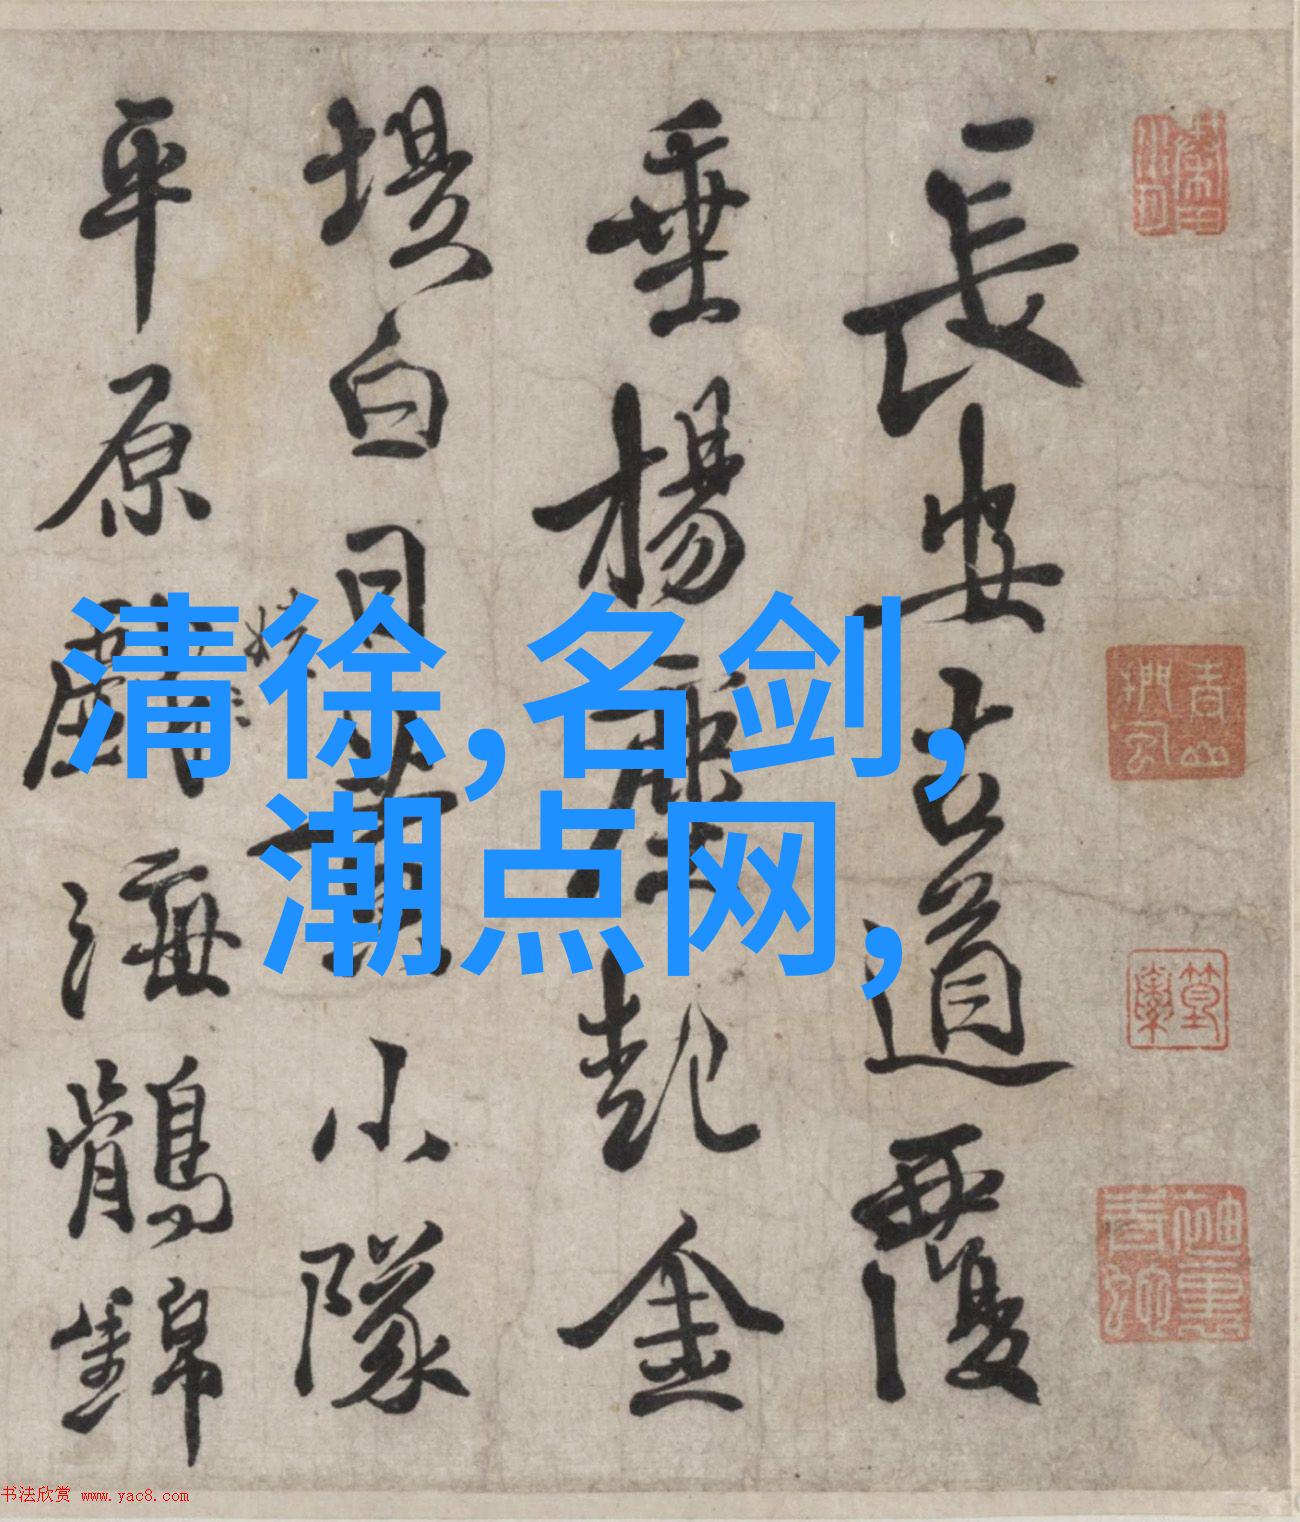 清徐,名剑,
潮点网,
長安古道覆
垂楊塵起金
堤白日黃小隊
平原海鶻錦
书法欣赏 www.yac8.com